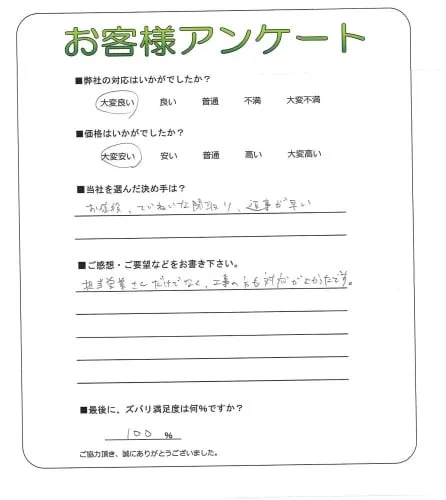 お客様アンケート
■弊社の対応はいかがでしたか？
大変良い 良い 普通 不満 大変不満
■価格はいかがでしたか？
大変安い 安い 普通 高い 大変高い
■当社を選んだ決め手は？
お値段、ていねいな聞取り、返事が早い
■ご感想・ご要望などをお書き下さい。
担当営業さんだけでなく、工事の方も対応がよかったです。
■最後に、ズバリ満足度は何％ですか？
100 ％
ご協力頂き、誠にありがとうございました。